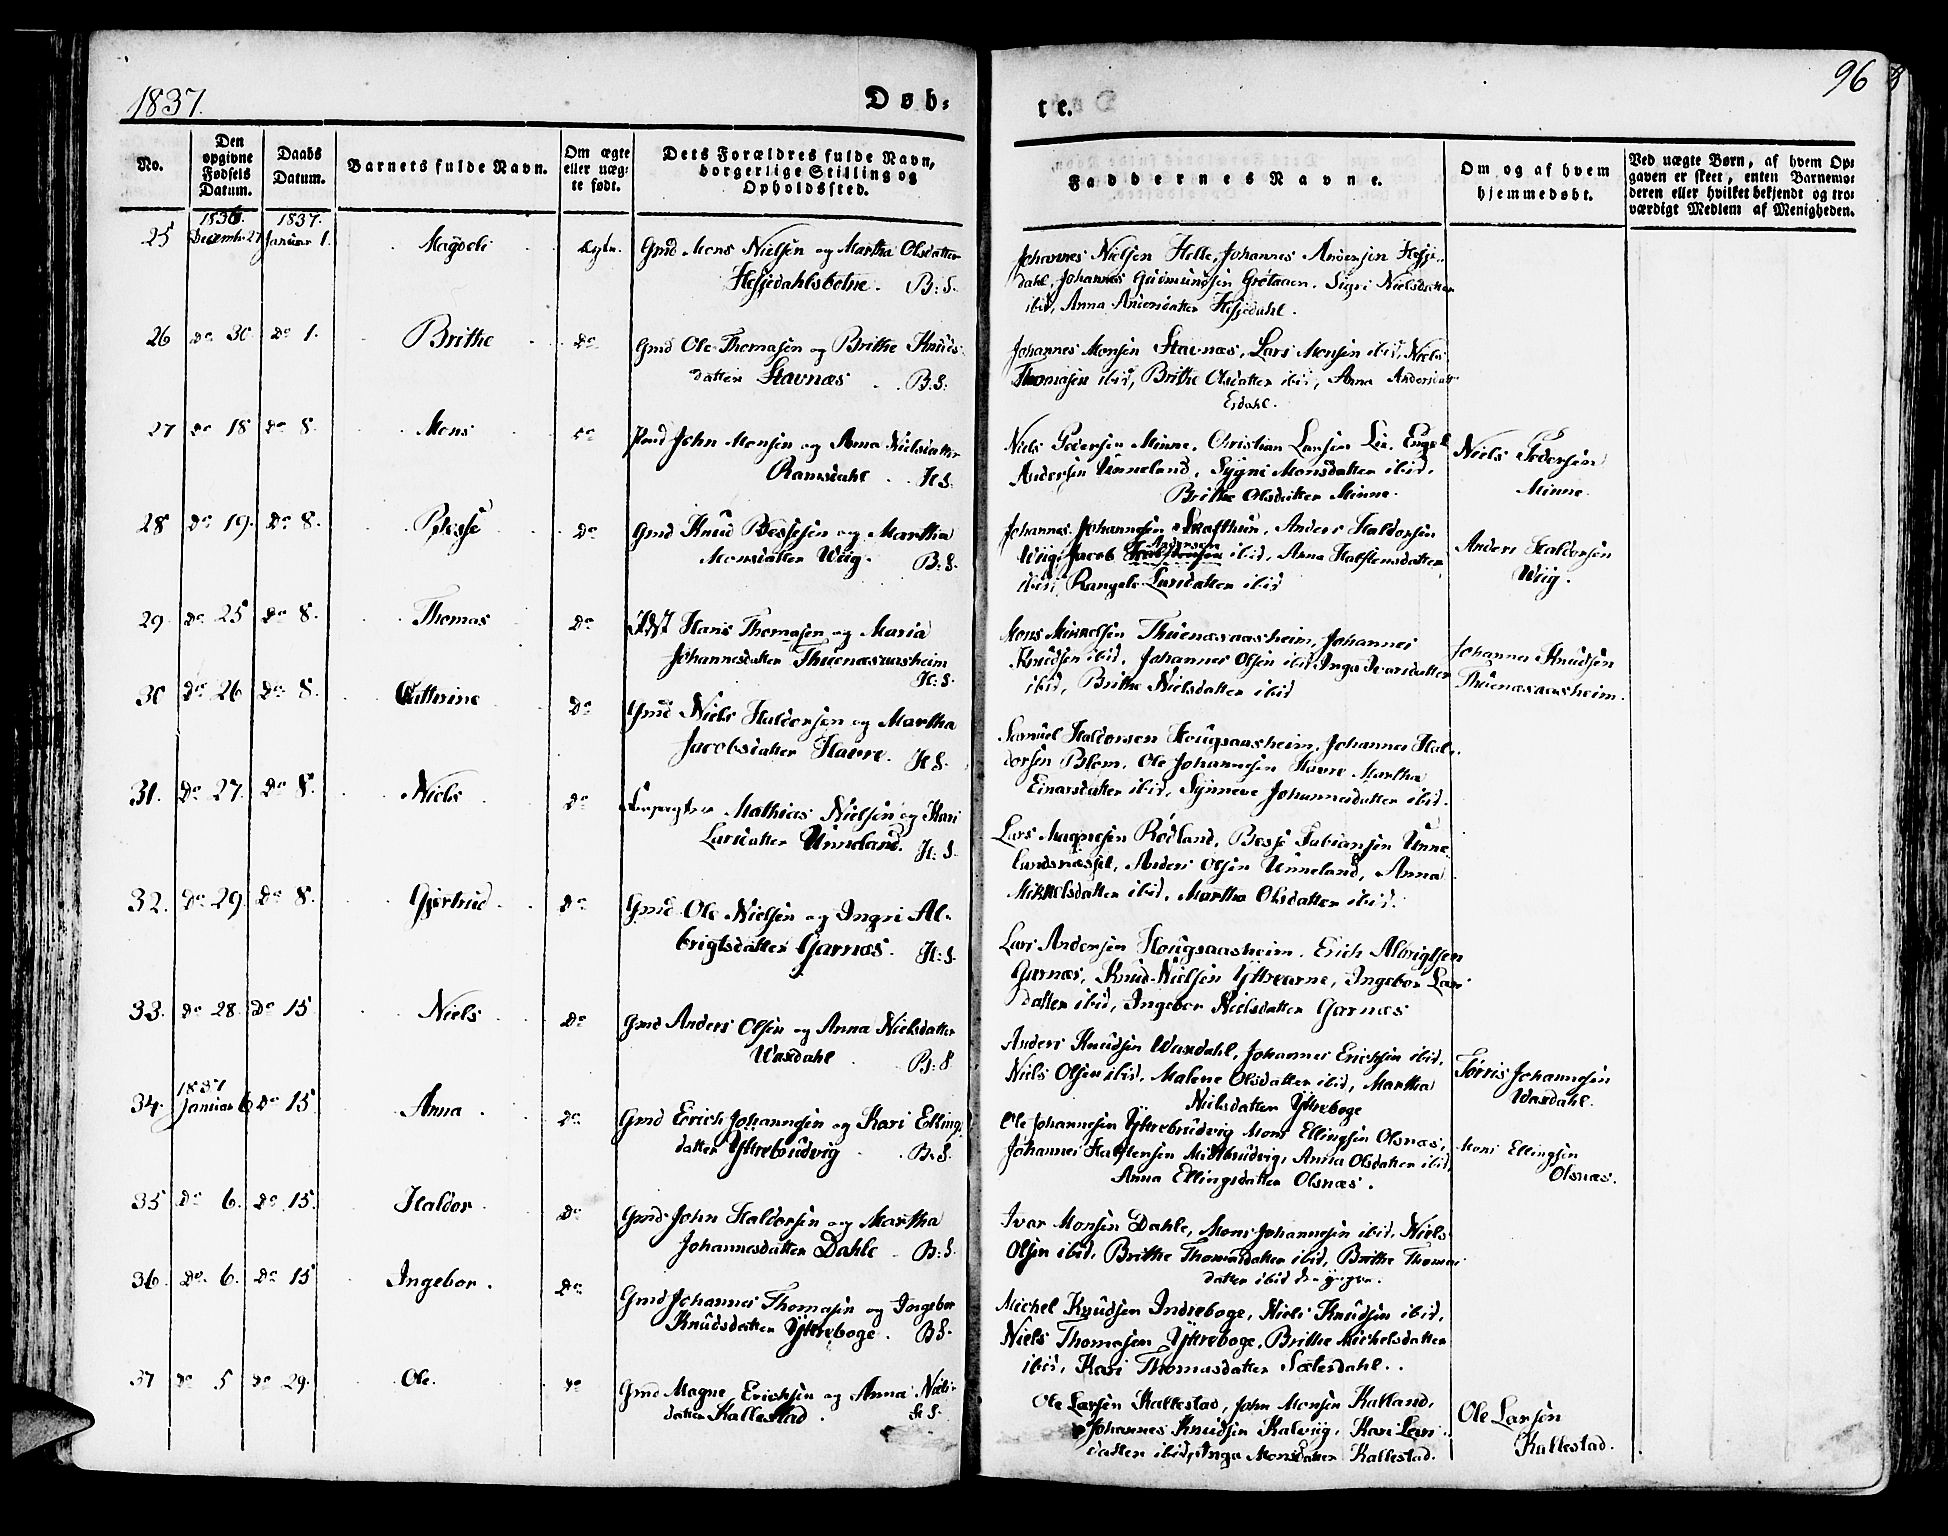 1837.
Døb-
te.
96
No.
Den opgivne Fødsels Datum.
Daabs Datum.
Barnets fulde Navn.
Om ægte eller uægte født.
Dets Forældres fulde Navn, borgerlige Stilling og Opholdssted.
Faddernes Navne.
Om og af hvem hjemmedøbt.
Ved uægte Børn, af hvem Opgaven er skeet, enten Barnemoderen eller hvilket bekjendt og troværdigt Medlem af Menigheden.
1836. 1837.
25 Decemb. 27 Januar 1. Magdeli Ægte. Gmd Mons Nielsen og Martha Olsdatter
Hesjedahlsbotne. B: S.
Johannes Nielsen Helle, Johannes Andersen Hesje-
dahl, Johannes Gudmundsen Grøtaaen. Sigri Nielsdatter
ibid, Anna Andersdatter Hesjedahl.
26 Do 30. Do 1. Brithe Do Gmd Ole Thomasen og Brithe Knuds-
datter Stavnæs B: S.
Johannes Monsen Stavnæs, Lars Monsen ibid, Niels
Thomasen ibid, Brithe Olsdatter ibid, Anna Andersdatr
Esdahl.
27 Do 18 Do 8. Mons Do John Monsen og Anna Nielsdatter
Ramsdahl H: S.
Niels Pedersen Minne, Christian Larsen Lie, Engel
Andersen Unneland, Sygni Monsdatter ibid,
Brithe Olsdatter Minne.
Niels Pedersen
Minne.
28 Do 19. Do 8. Besse Do Gmd Knud Bessesen og Martha
Monsdatter Wiig. B: S.
Johannes Johannesen Skafthun, Anders Haldorsen
Andersen
Wiig, Jacob Halstensen ibid, Anna Halstensdatter
ibid, Rangele Larsdatter ibid
Anders Haldorsen
Wiig.
29. Do 25 Do 8. Thomas Do Hans Thomasen og Maria
Johannesdatter Thuenæsaasheim
H: S.
Mons Mikkelsen Thuenæsaasheim, Johannes
Knudsen ibid, Johannes Olsen ibid, Inga Ivarsdatter
ibid, Brithe Nielsdatter ibid
Johannes Knudsen
Thuenæsaasheim.
30 Do 26 Do 8. Catterine Do Gmd Niels Haldorsen og Martha
Jacobsdatter Havre. H: S.
Samuel Haldorsen Hougsaasheim, Johannes Hal-
dorsen Blom, Ole Johannesen Havre Martha
Einarsdatter ibid, Synneve Johannesdatter ibid.
31. Do 27. Do 8. Niels Do Mathias Nielsen og Kari
Larsdatter Unneland. H: S.
Lars Magnesen Rødland, Besse Fabiansen Unne-
landsnæsset, Anders Olsen Unneland, Anna
Mikkelsdatter ibid, Martha Olsdatter ibid.
32. Do 29. Do 8. Gjertrud Do Gmd Ole Nielsen og Ingri Al-
brigtsdatter Garnæs. H: S.
Lars Andersen Hougsaasheim, Erich Albrigtsen
Garnæs, Knud Nielsen Yttrearne, Ingebor Lars-
datter ibid, Ingebor Nielsdatter Garnæs
33. Do 28. Do 15 Niels Do Gmd Anders Olsen og Anna Nielsdatter
Waxdahl B: S.
Anders Knudsen Waxdahl, Johannes Erichsen ibid,
Niels Olsen ibid, Malene Olsdatter ibid, Martha
Nielsdatter Yttreboge
Torris Johannesen
Waxdahl.
1837
34. Januar 6. Do 15 Anna Do Gmd Erich Johannesen og Kari Ellings-
datter Yttrebrudvig B: S.
Ole Johannesen Yttrebrudvig Mons Ellingsen Olsnæs,
Johannes Halstensen Midtbrudvig, Anna Olsdatter ibid
Anna Ellingsdatter Olsnæs.
Mons Ellingsen
Olsnæs.
35 Do 6. Do 15. Haldor Do Gmd John Haldorsen og Martha
Johannesdatter Dahle B: S.
Ivar Monsen Dahle, Mons Johannesen ibid, Niels
Olsen ibid, Brithe Thomasdatter ibid, Brithe Thomas-
datter ibid den yngre.
36. Do. 6. Do 15 Ingebor. Do Gmd Johannes Thomasen og Ingebor
Knudsdatter Yttreboge. B: S.
Michel Knudsen Indreboge, Niels Knudsen ibid,
Niels Thomasen Yttreboge, Brithe Michelsdatter
ibid, Kari Thomasdatter Sælesdahl.
37 Do 5 Do 29. Ole. Do Gmd Magne Erichsen og Anna Niels-
datter Kallestad. H: S.
Ole Larsen Kallestad, John Monsen Kalland,
Johannes Knudsen Kalviig, Kari Lars-
datter ibid, Inga Monsdatter Kallestad.
Ole Larsen
Kallestad.